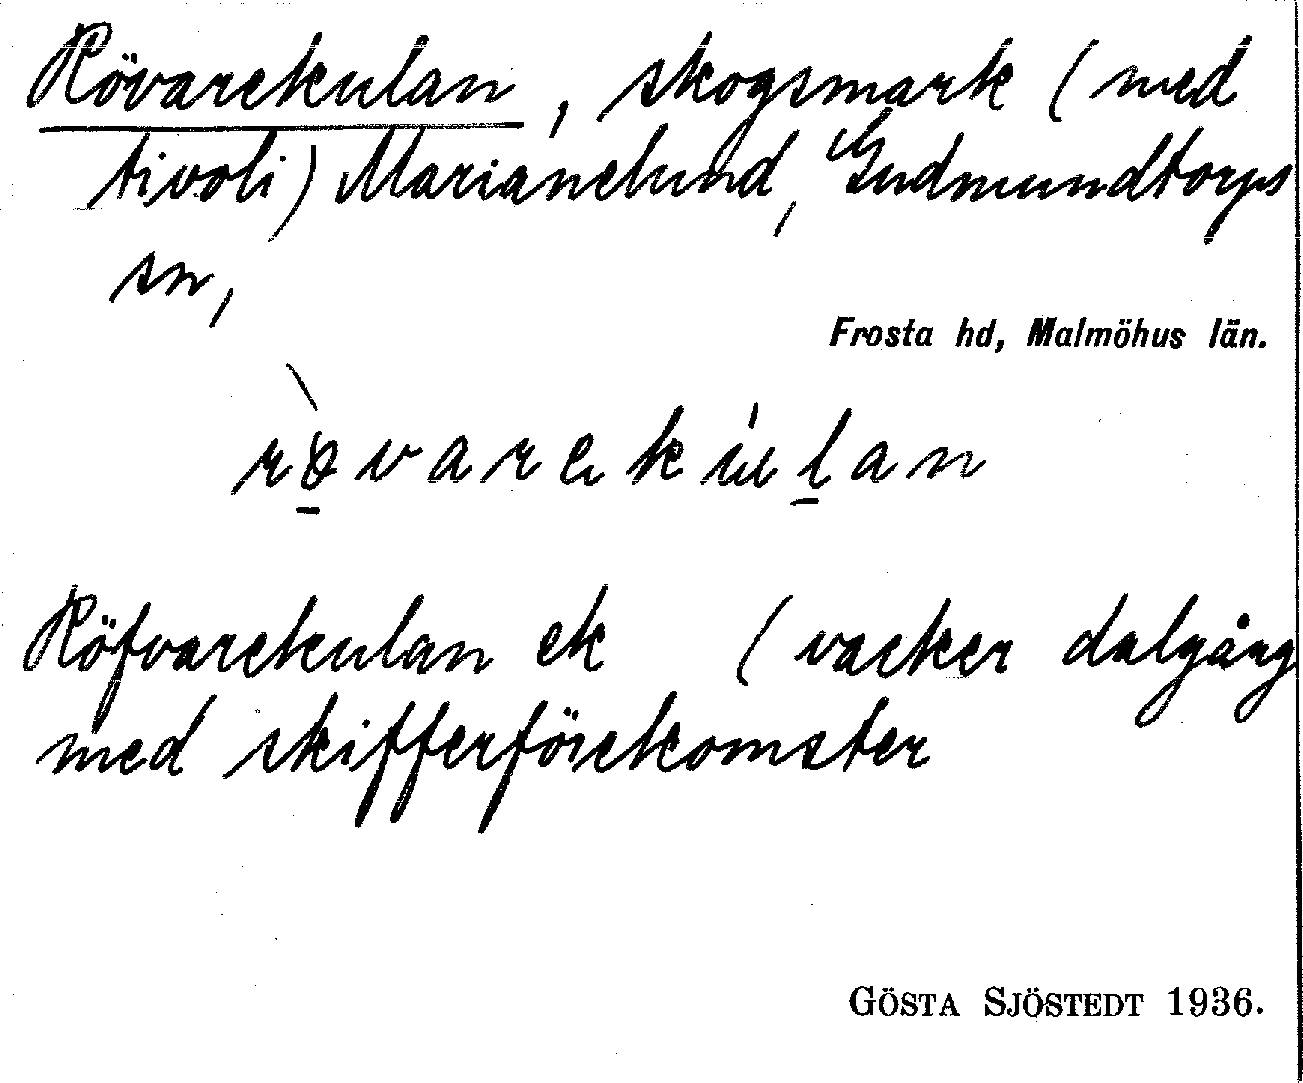 Rövarekulan, skogsmark (med
tivoli) Marianelund, Gudmundtorps
sn,
Frosta hd, Malmöhus län.
ròvarekúlan
Röfvarekulan ek (vacker dalgång
med skifferförekomster
GÖSTA SJÖSTEDT 1936.